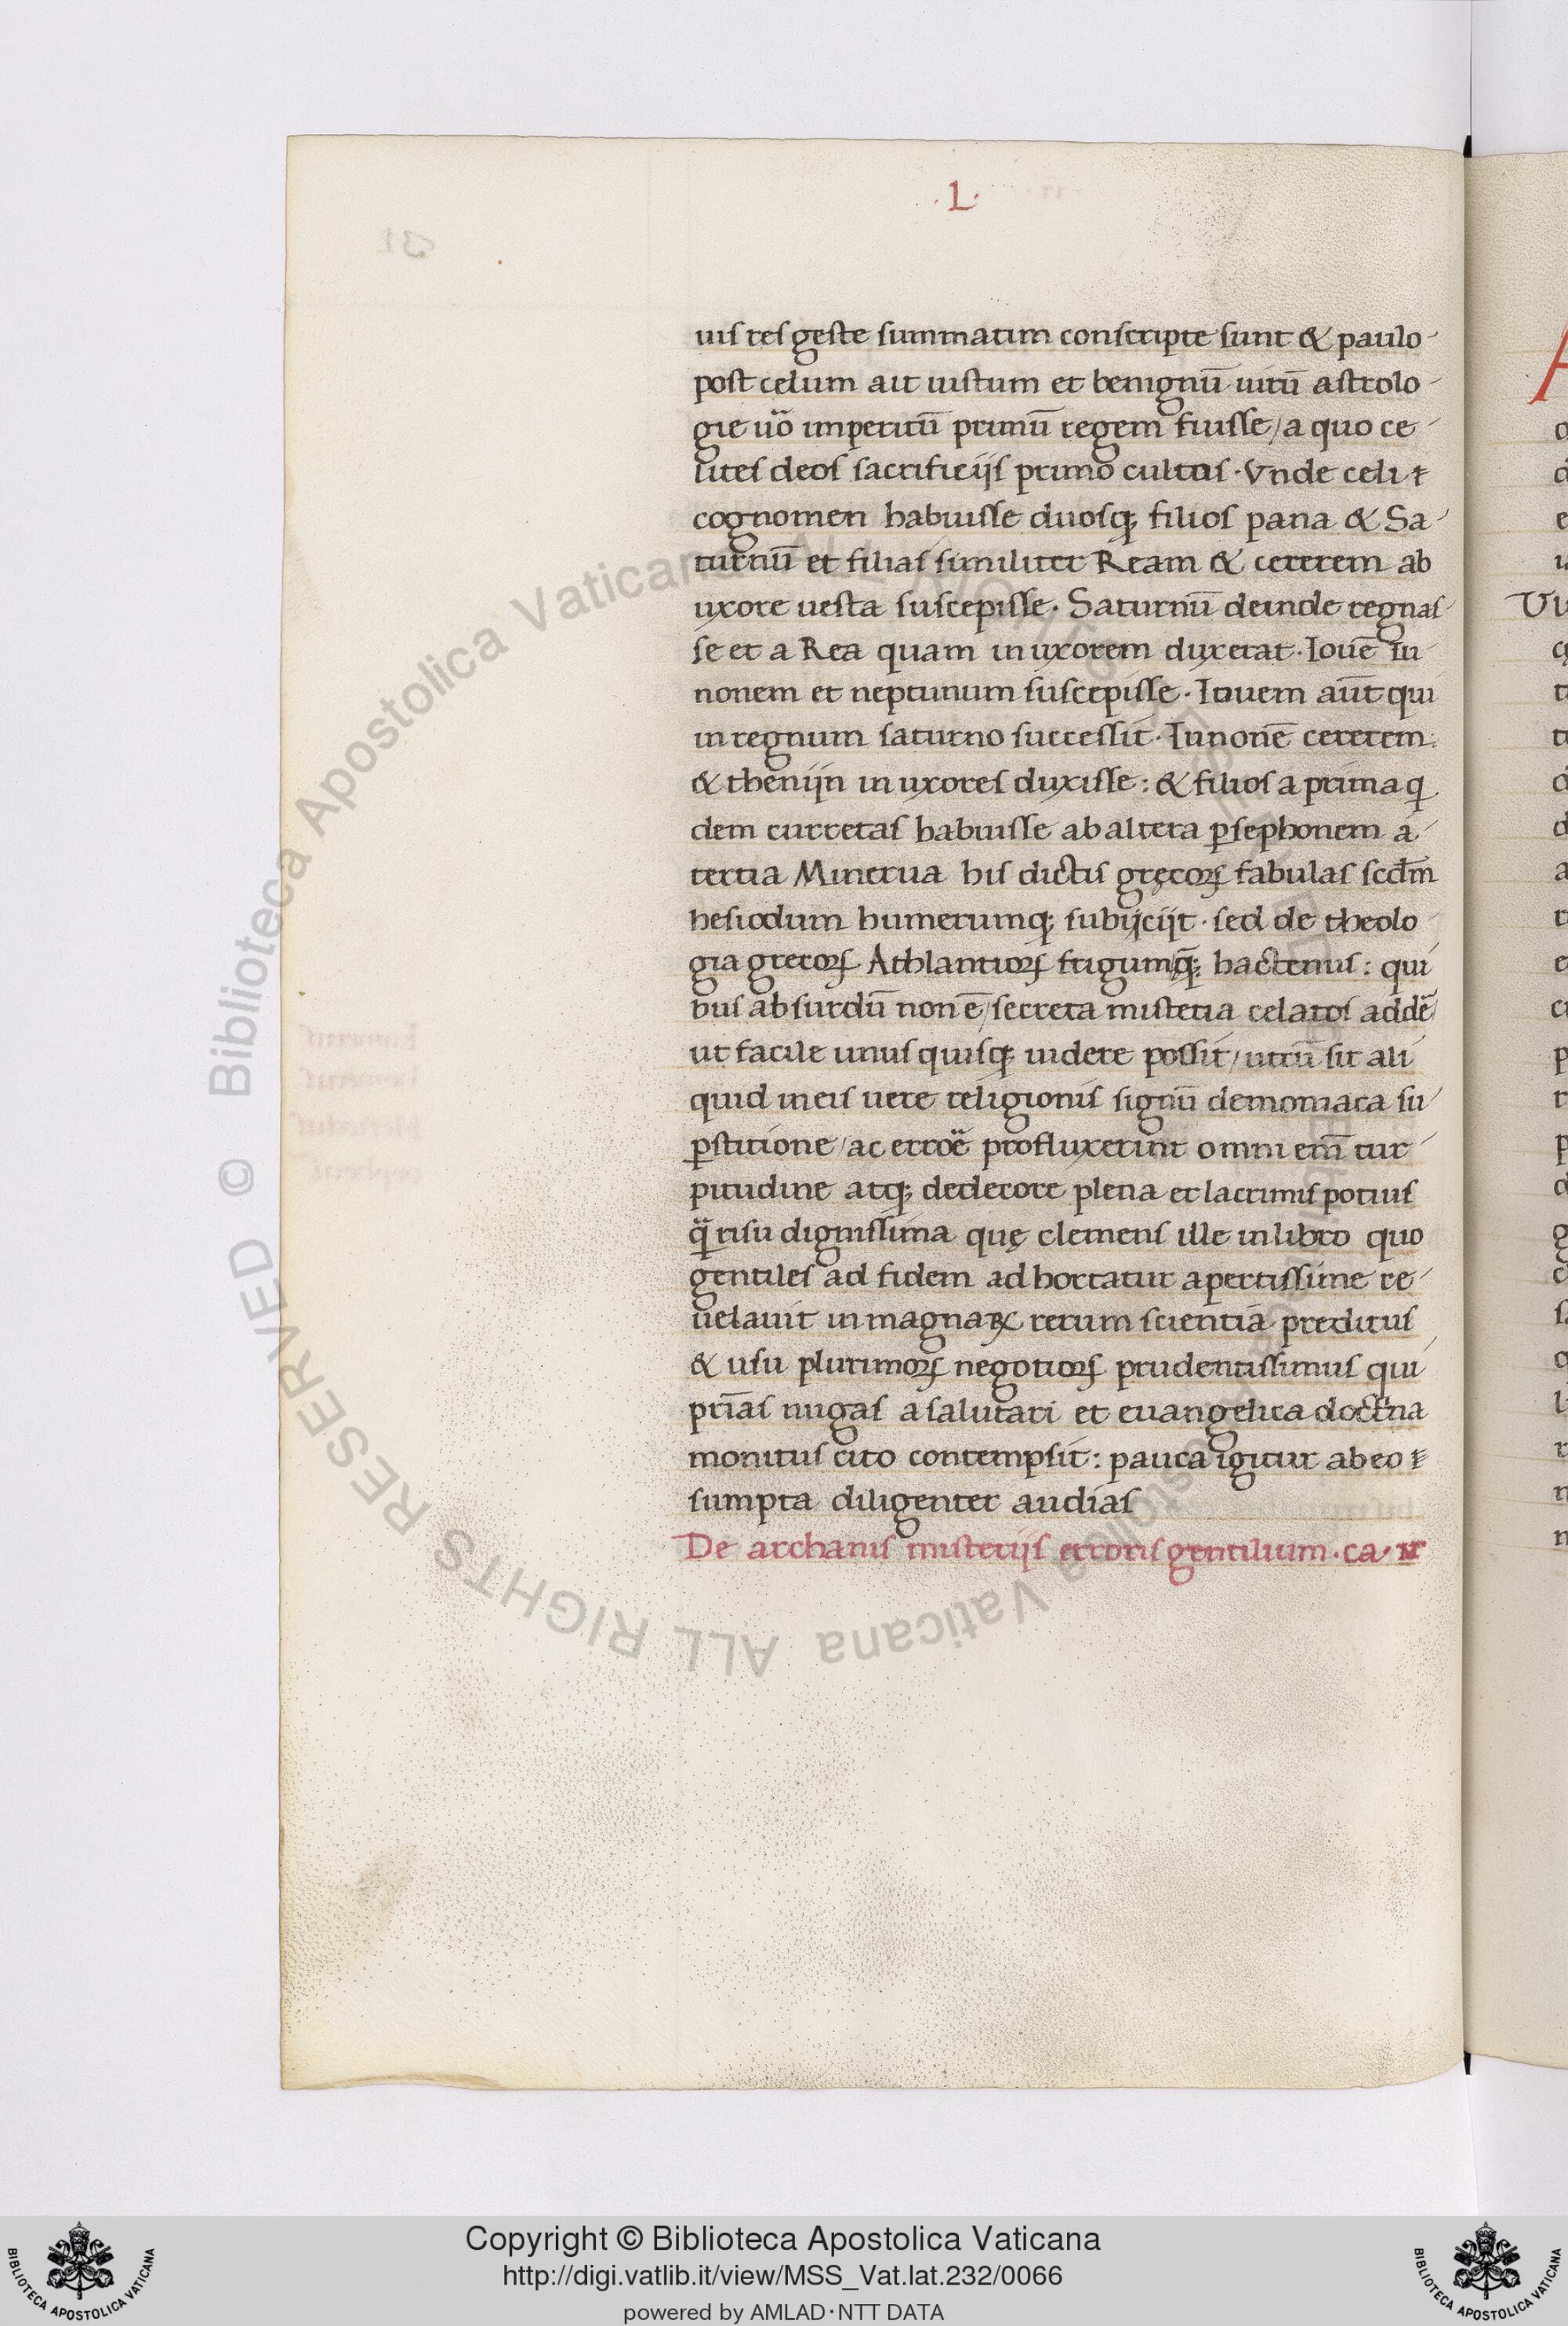 ·L·
uis res geste summatim conscripte sunt & paulo
post celum ait iustum et benignū uirū astrolo
gie uō imperitū primū regem fuisse / a quo ce
lites deos sacrificijs primo cultos · Vnde celi &
cognomen habuisse duosq; filios pana & Sa
turnū et filias similiter Ream & cererem ab
uxore uesta suscepisse · Saturnū deinde regnas
se et a Rea quam in uxorem duxerat · Iouē Iu
nonem et neptunum suscepisse · Iouem aūt qui
in regnum saturno successit · Iunonē cererem
& thenijn in uxores duxisse : & filios a prima q
dem curretas habuisse ab altera ꝑsephonem a
tertia Minerua his dictis gręcoꝝ fabulas scdm̄
hesiodum humerumq; subijcijt · sed de theolo
gia grecoꝝ Athlantioꝝ frigumq̄; hactenus : qui
bus absurdū non ē / secreta misteria celatos addē
ut facile unus quisq; uidere possit / utrū sit ali
quid in eis uere religionis signū demoniaca su
ꝑstitione / ac erroē profluxerint omni em̄ tur
pitudine atq; dedecore plena et lacrimis potius
q̄ risu dignissima quę clemens ille in libro quo
gentiles ad fidem adhortatur apertissime re
uelauit in magnaꝝ rerum scientia preditus
& usu plurimoꝝ negotioꝝ prudentissimus qui
prīas nugas a salutari et euangelica doct̄na
monitus cito contempsit : pauca igitur ab eo
sumpta diligenter audias
De archanis misterijs erroris gentilium · ca ·
Copyright © Biblioteca Apostolica Vaticana
http://digi.vatlib.it/view/MSS_Vat.lat.232/0066
powered by AMLAD · NTT DATA
BIBLIOTECA APOSTOLICA VATICANA
BIBLIOTECA APOSTOLICA VATICANA
© Biblioteca Apostolica Vaticana ALL RIGHTS RESERVED